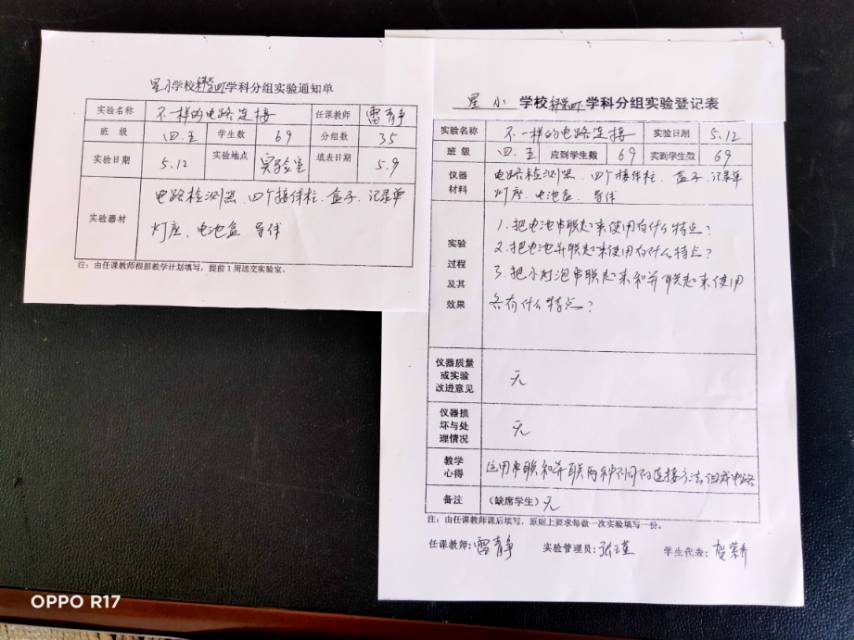 星小学校科学四学科分组实验通知单
实验名称 不一样的电路连接 任课教师 雷青争
班 级 四.五 学生数 69 分组数 35
实验日期 5.12 实验地点 实验室 填表日期 5.9
实验器材 电路检测器、四个接线柱、盒子、记录单
灯座、电池盒 导线
注：由任课教师根据教学计划填写，提前1周送交实验室。
星小 学校 学科分组实验登记表
实验名称 不一样的电路连接 实验日期 5.12
班 级 四.五 应到学生数 69 实到学生数 69
仪器材料 电路检测器、四个接线柱、盒子、记录单
灯座、电池盒、导线
实验过程及其效果
1.把电池串联起来使用有什么特点？
2.把电池并联起来使用有什么特点？
3.把小灯泡串联起来和并联起来使用
各有什么特点？
仪器质量或实验改进意见 无
仪器损坏与处理情况 无
教学心得 运用串联和并联两种不同的连接方法,组成电路
备注 (缺席学生) 无
注：由任课教师课后填写，原则上要求每做一次实验填写一份。
任课教师: 雷青争 实验管理员: 学生代表:
OPPO R17